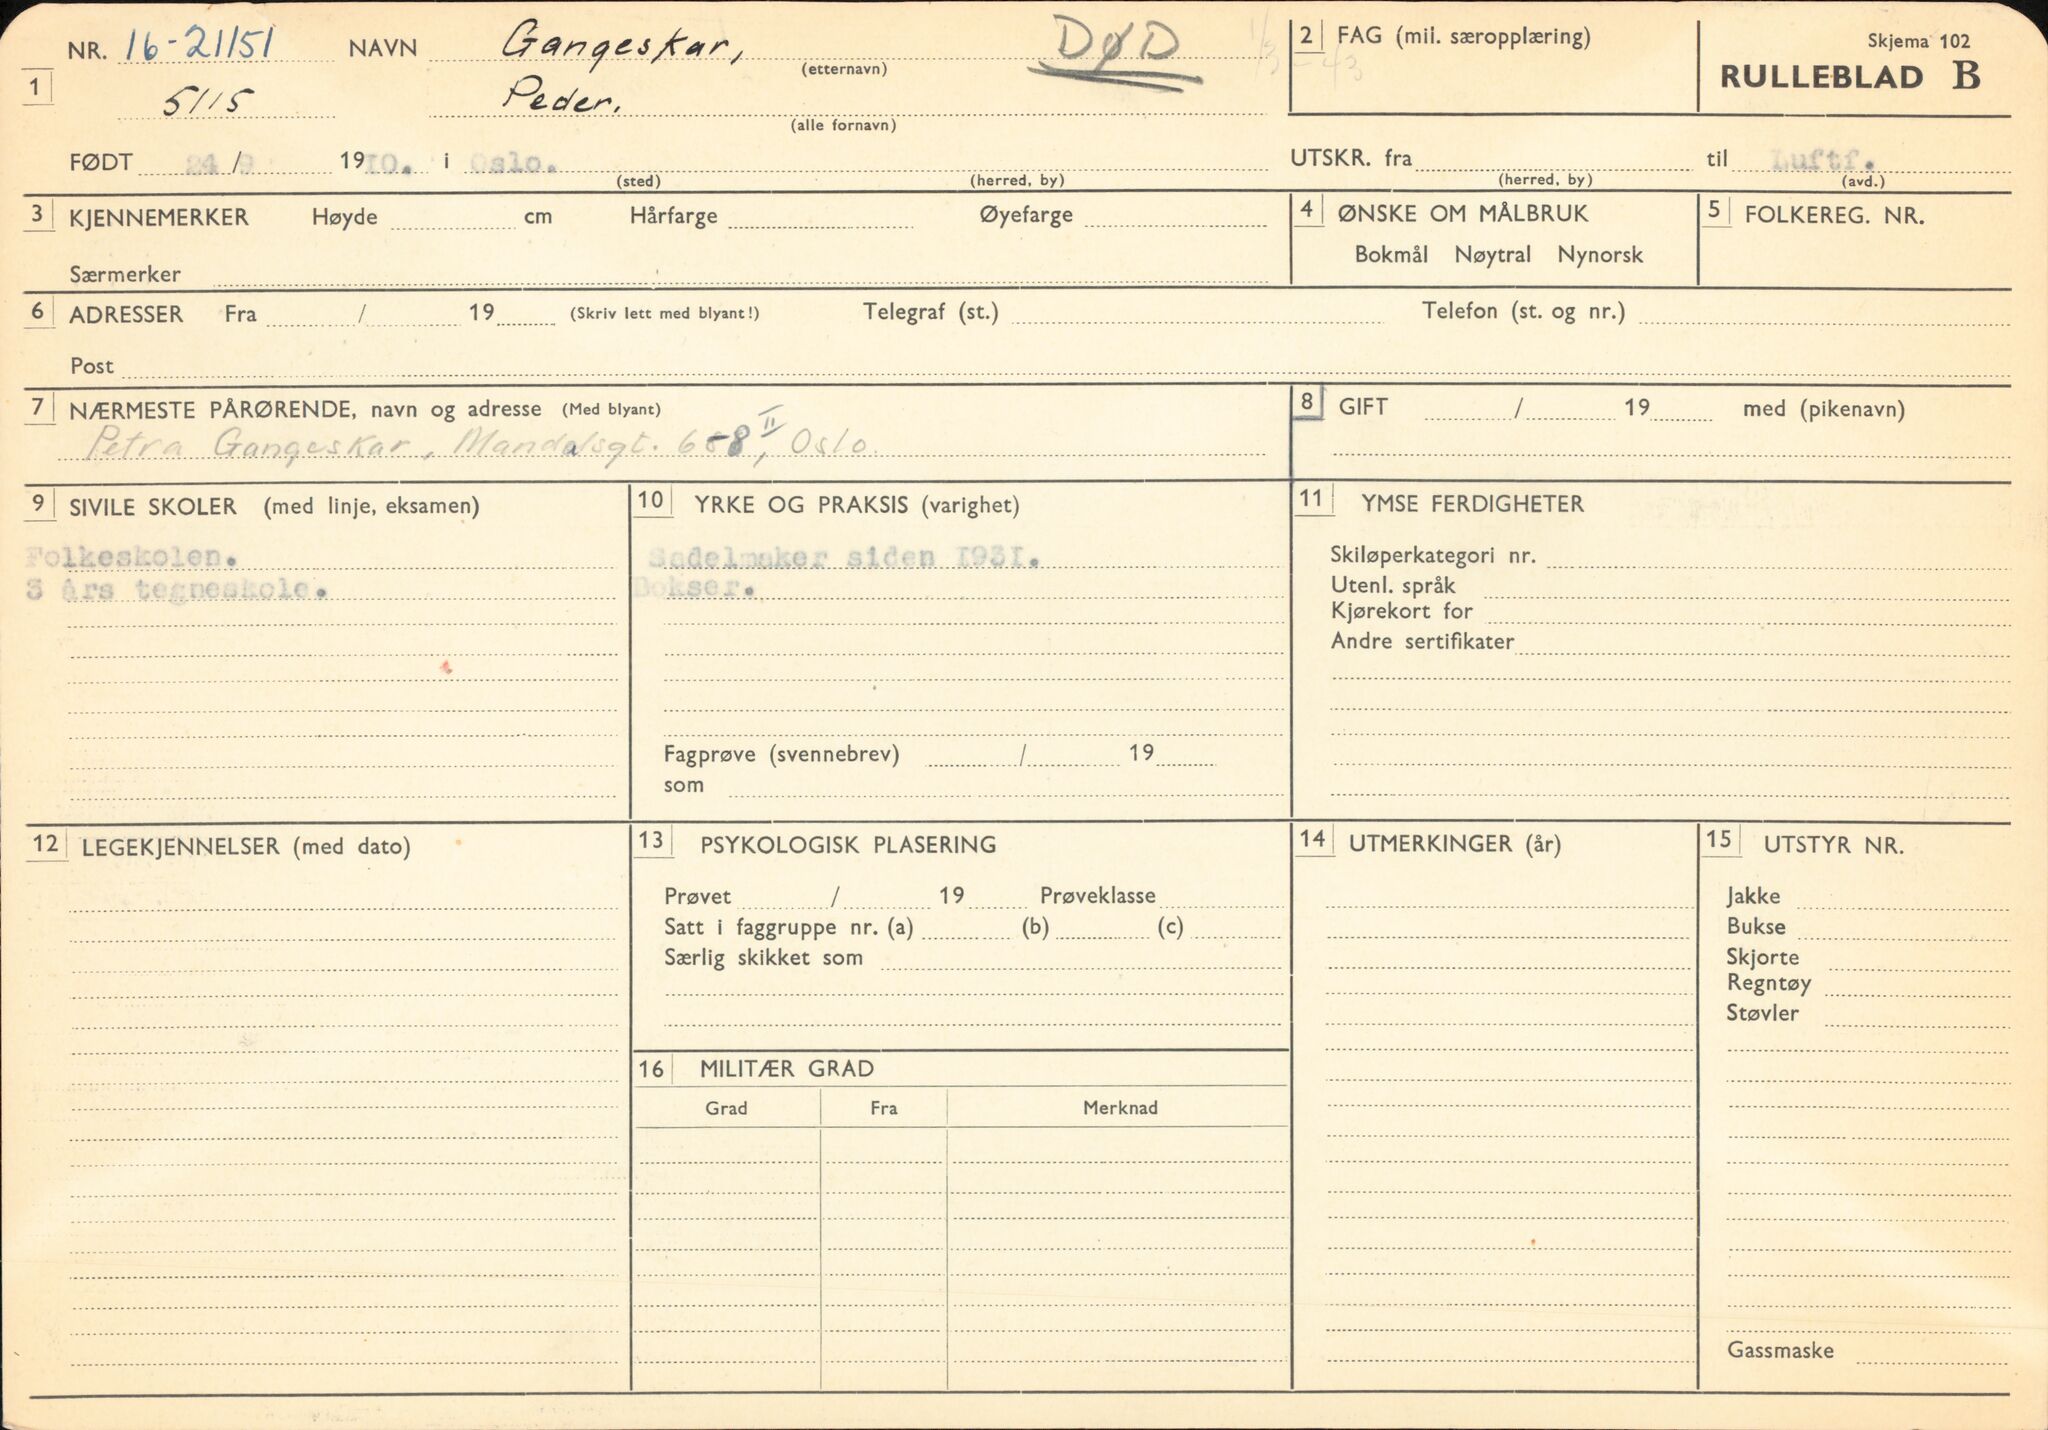 NR. 16-21151 NAVN Gangeskar, DØD 1/3 - 43
(etternavn)
1 5115 Peder.
(alle fornavn)
FØDT 24/9 1910. i Oslo.
(sted) (herred, by)
2 FAG (mil. særopplæring)
Skjema 102
RULLEBLAD B
UTSKR. fra til Luftf.
(herred, by) (avd.)
3 KJENNEMERKER Høyde cm Hårfarge Øyefarge
Særmerker
4 ØNSKE OM MÅLBRUK
Bokmål Nøytral Nynorsk
5 FOLKEREG. NR.
6 ADRESSER Fra / 19 (Skriv lett med blyant!) Telegraf (st.) Telefon (st. og nr.)
Post
7 NÆRMESTE PÅRØRENDE, navn og adresse (Med blyant)
Petra Gangeskar, Mandalsgt. 8 II, Oslo.
8 GIFT / 19 med (pikenavn)
9 SIVILE SKOLER (med linje, eksamen)
Folkeskolen.
3 års tegneskole.
10 YRKE OG PRAKSIS (varighet)
Sadelmaker siden 1931.
Bokser.
Fagprøve (svennebrev) / 19
som
11 YMSE FERDIGHETER
Skiløperkategori nr.
Utenl. språk
Kjørekort for
Andre sertifikater
12 LEGEKJENNELSER (med dato)
13 PSYKOLOGISK PLASERING
Prøvet / 19 Prøveklasse
Satt i faggruppe nr. (a) (b) (c)
Særlig skikket som
14 UTMERKINGER (år)
15 UTSTYR NR.
Jakke
Bukse
Skjorte
Regntøy
Støvler
Gassmaske
16 MILITÆR GRAD
Grad Fra Merknad